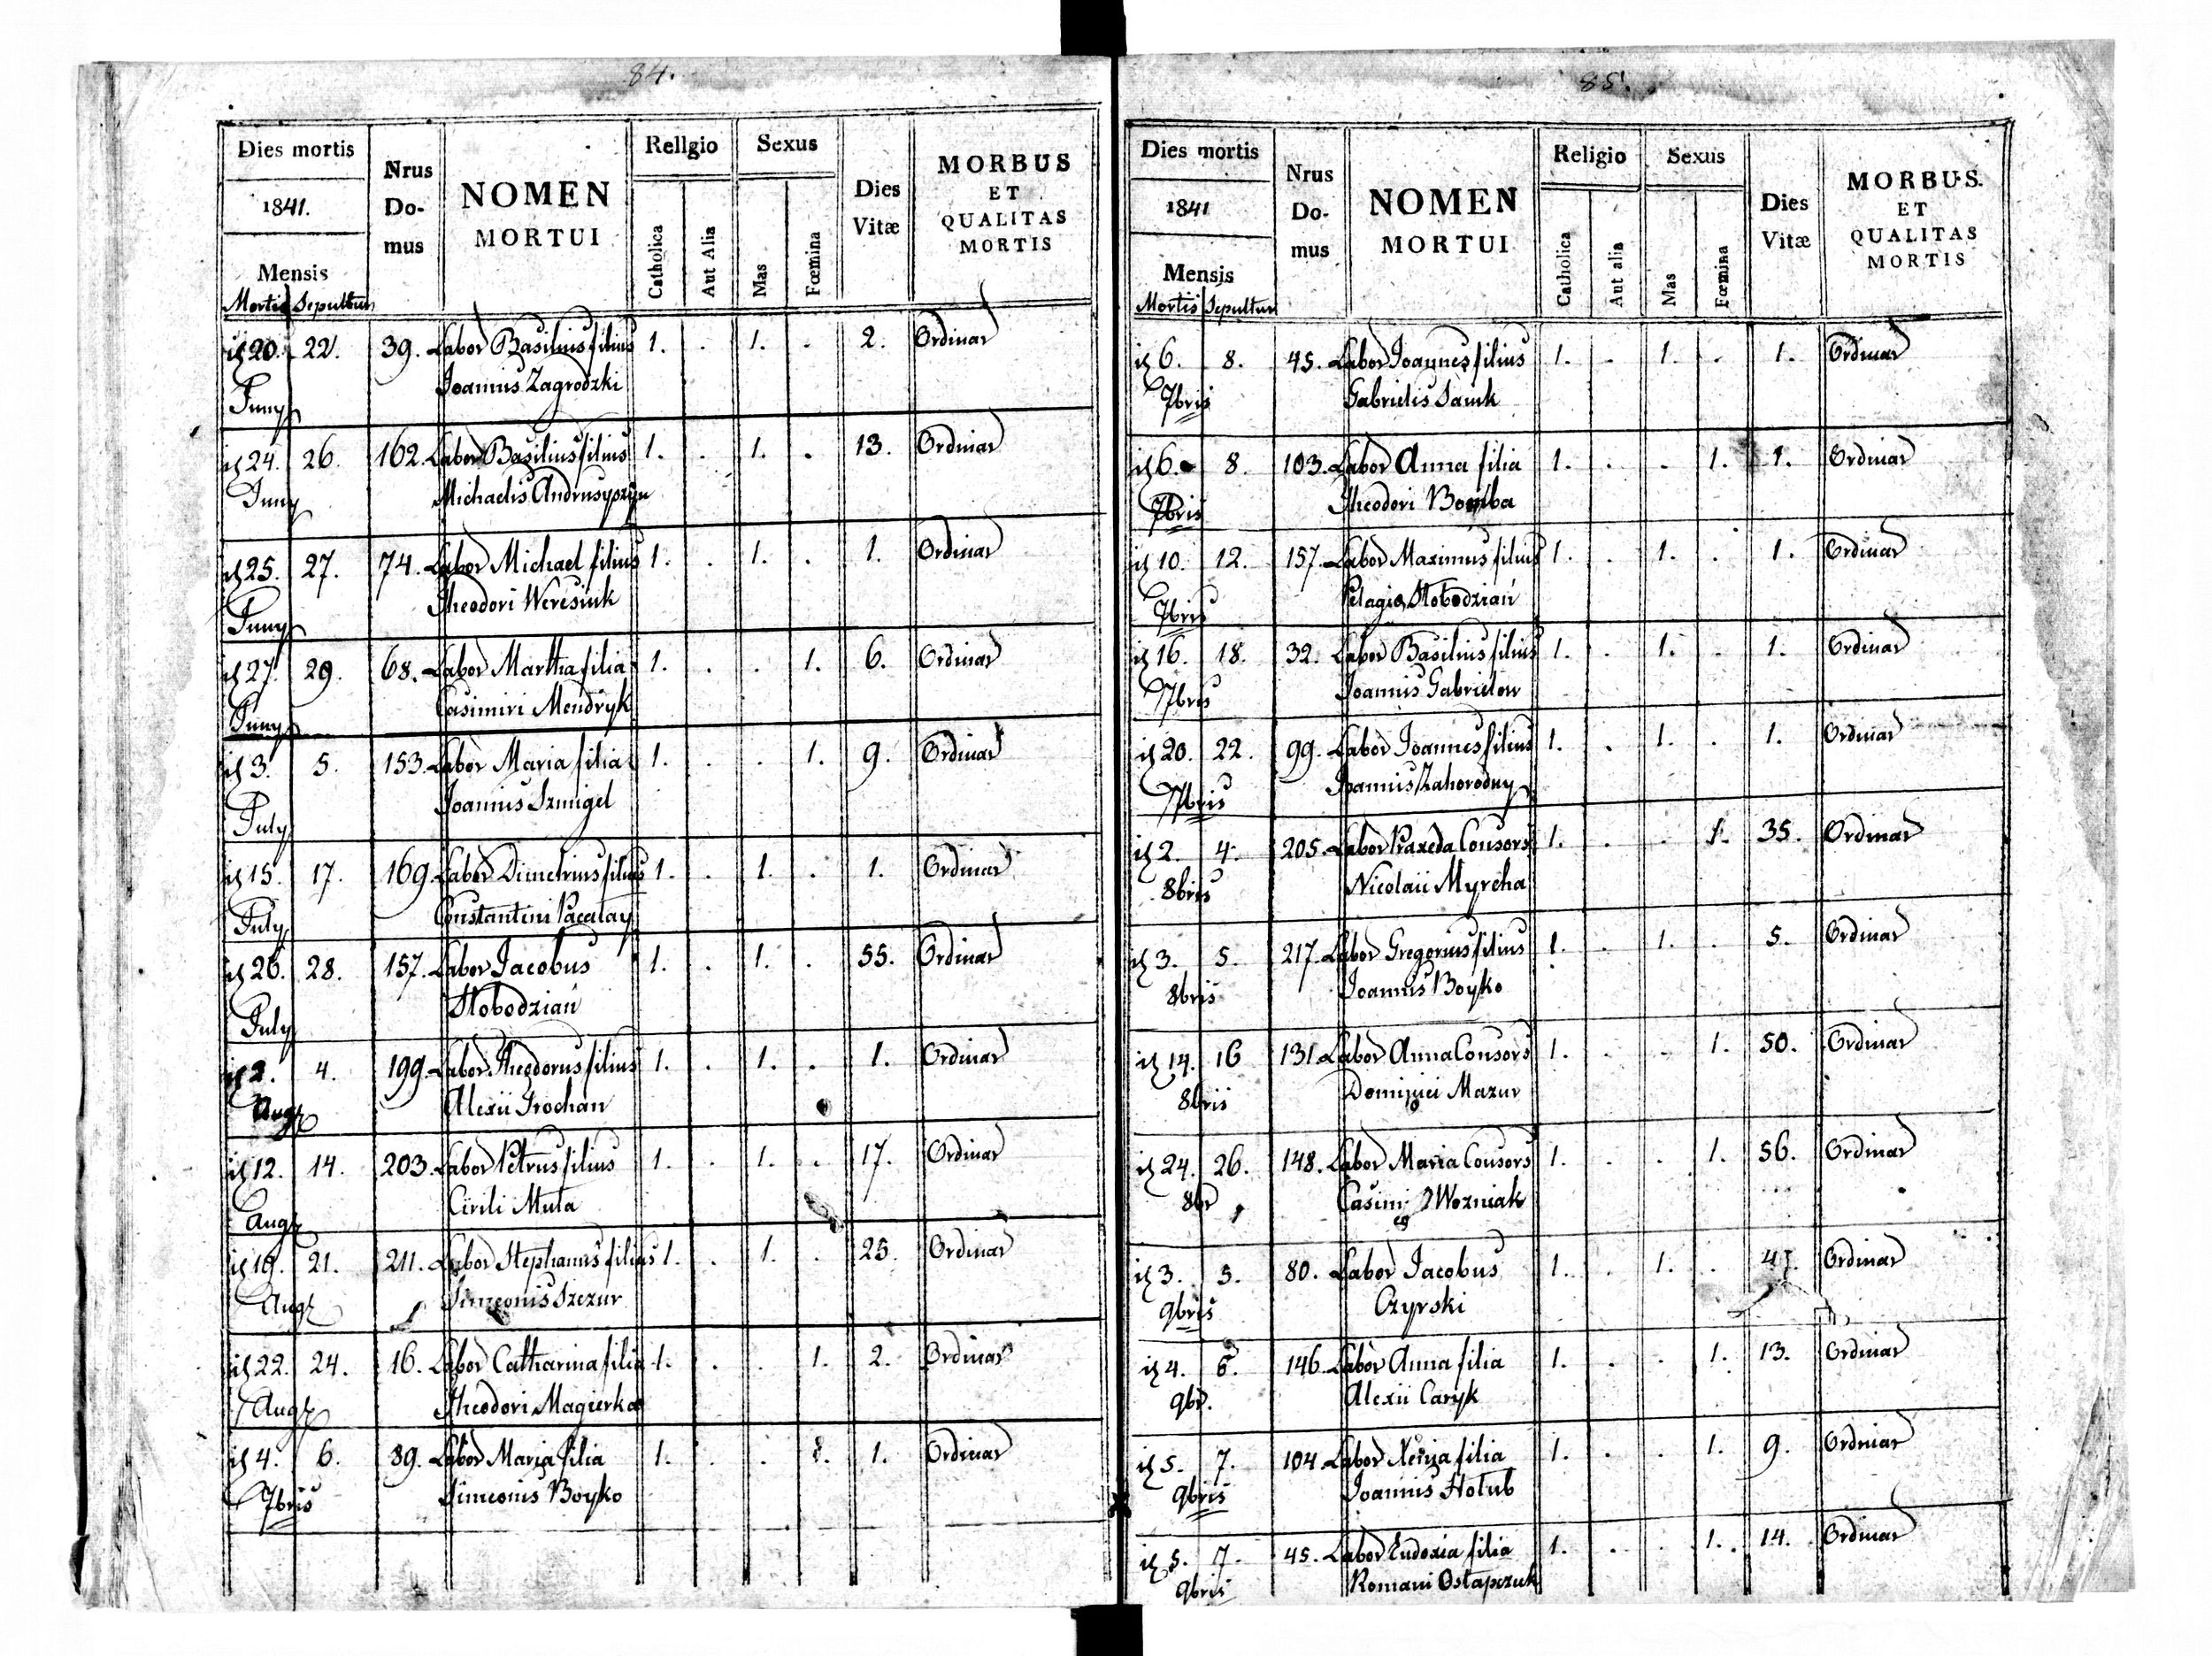 84.
Dies mortis
1841.
Mensis
Mortis Sepultur
Nrus Do- mus
NOMEN MORTUI
Rellgio
Catholica
Aut Alia
Sexus
Mas
Fœmina
Dies Vitæ
MORBUS ET QUALITAS MORTIS
20. 22. 39. Labor Basilius filius 1. . 1. . 2. Ordinar
Juny Joannis Zagrodzki
24. 26. 162. Labor Basilius filius 1. . 1. . 13. Ordinar
Juny Michaelis Andrusyszyn
25. 27. 74. Labor Michael filius 1. . 1. . 1. Ordinar
Juny Theodori Weresiuk
27. 29. 68. Labor Martha filia 1. . . 1. 6. Ordinar
Juny Casimiri Mendryk
3. 5. 153. Labor Maria filia 1. . . 1. 9. Ordinar
July Joannis Szmigel
15. 17. 169. Labor Dimetrius filius 1. . 1. . 1. Ordinar
July Constantini Pacalay
26. 28. 157. Labor Jacobus 1. . 1. . 55. Ordinar
July Slobodzian
2. 4. 199. Labor Theodorus filius 1. . 1. . 1. Ordinar
Aug Alexii Trochan
12. 14. 203. Labor Petrus filius 1. . 1. . 17. Ordinar
Aug Cirili Muta
19. 21. 211. Labor Stephanus filius 1. . 1. . 25. Ordinar
Aug Simeonis Szczur
22. 24. 16. Labor Catharina filia 1. . . 1. 2. Ordinar
Aug Theodori Magierka
4. 6. 89. Labor Maria filia 1. . . 1. 1. Ordinar
7bris Simeonis Boyko
85.
Dies mortis
1841
Mensis
Mortis Sepultur
Nrus Do- mus
NOMEN MORTUI
Religio
Catholica
Aut alia
Sexus
Mas
Fœmina
Dies Vitæ
MORBUS. ET QUALITAS MORTIS
6. 8. 45. Labor Joannes filius 1. . 1. . 1. Ordinar
7bris Gabrielis Sauk
6. 8. 103. Labor Anna filia 1. . . 1. 1. Ordinar
7bris Theodori Bomba
10. 12. 157. Labor Maximus filius 1. . 1. . 1. Ordinar
7bris Pelagia Slobodzian
16. 18. 32. Labor Basilius filius 1. . 1. . 1. Ordinar
7bris Joannis Gabrielow
20. 22. 99. Labor Joannes filius 1. . 1. . 1. Ordinar
7bris Joannis Zahorodny
2. 4. 205. Labor Paraxeda Consors 1. . . 1. 35. Ordinar
8bris Nicolaii Myrcha
3. 5. 217. Labor Gregorius filius 1. . 1. . 5. Ordinar
8bris Joannis Boyko
14. 16 131. Labor Anna Consors 1. . . 1. 50. Ordinar
8bris Dominici Mazur
24. 26. 148. Labor Maria Consors 1. . . 1. 56. Ordinar
8br Casimi Wozniak
3. 5. 80. Labor Jacobus 1. . 1. . 47. Ordinar
9bris Czyrski
4. 6. 146. Labor Anna filia 1. . . 1. 13. Ordinar
9br. Alexii Caryk
5. 7. 104. Labor Xenia filia 1. . . 1. 9. Ordinar
9bris Joannis Holub
5. 7. 45. Labor Eudoxia filia 1. . . 1. 14. Ordinar
9bris Romani Ostapczuk